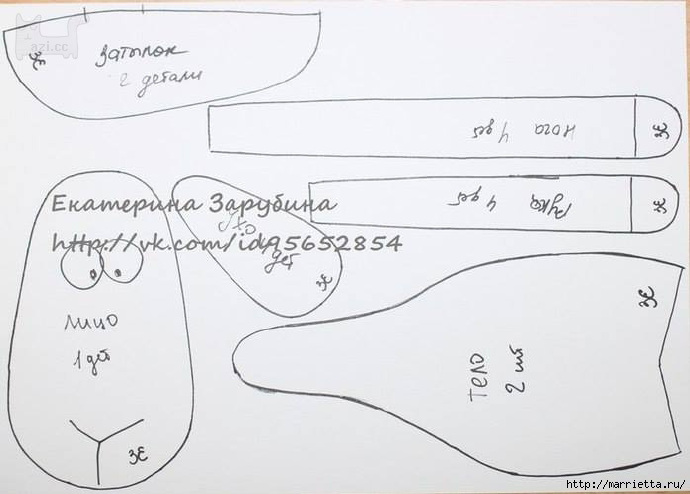 azi.cc
затылок
2 детали
ЗЕ
Нога 4 дет
ЗЕ
Рука 4 дет
ЗЕ
Екатерина Зарубина
http://vk.com/id95652854
Ухо
дет
ЗЕ
Лицо
1 дет
ЗЕ
Тело
2 шт
ЗЕ
http://marrietta.ru/